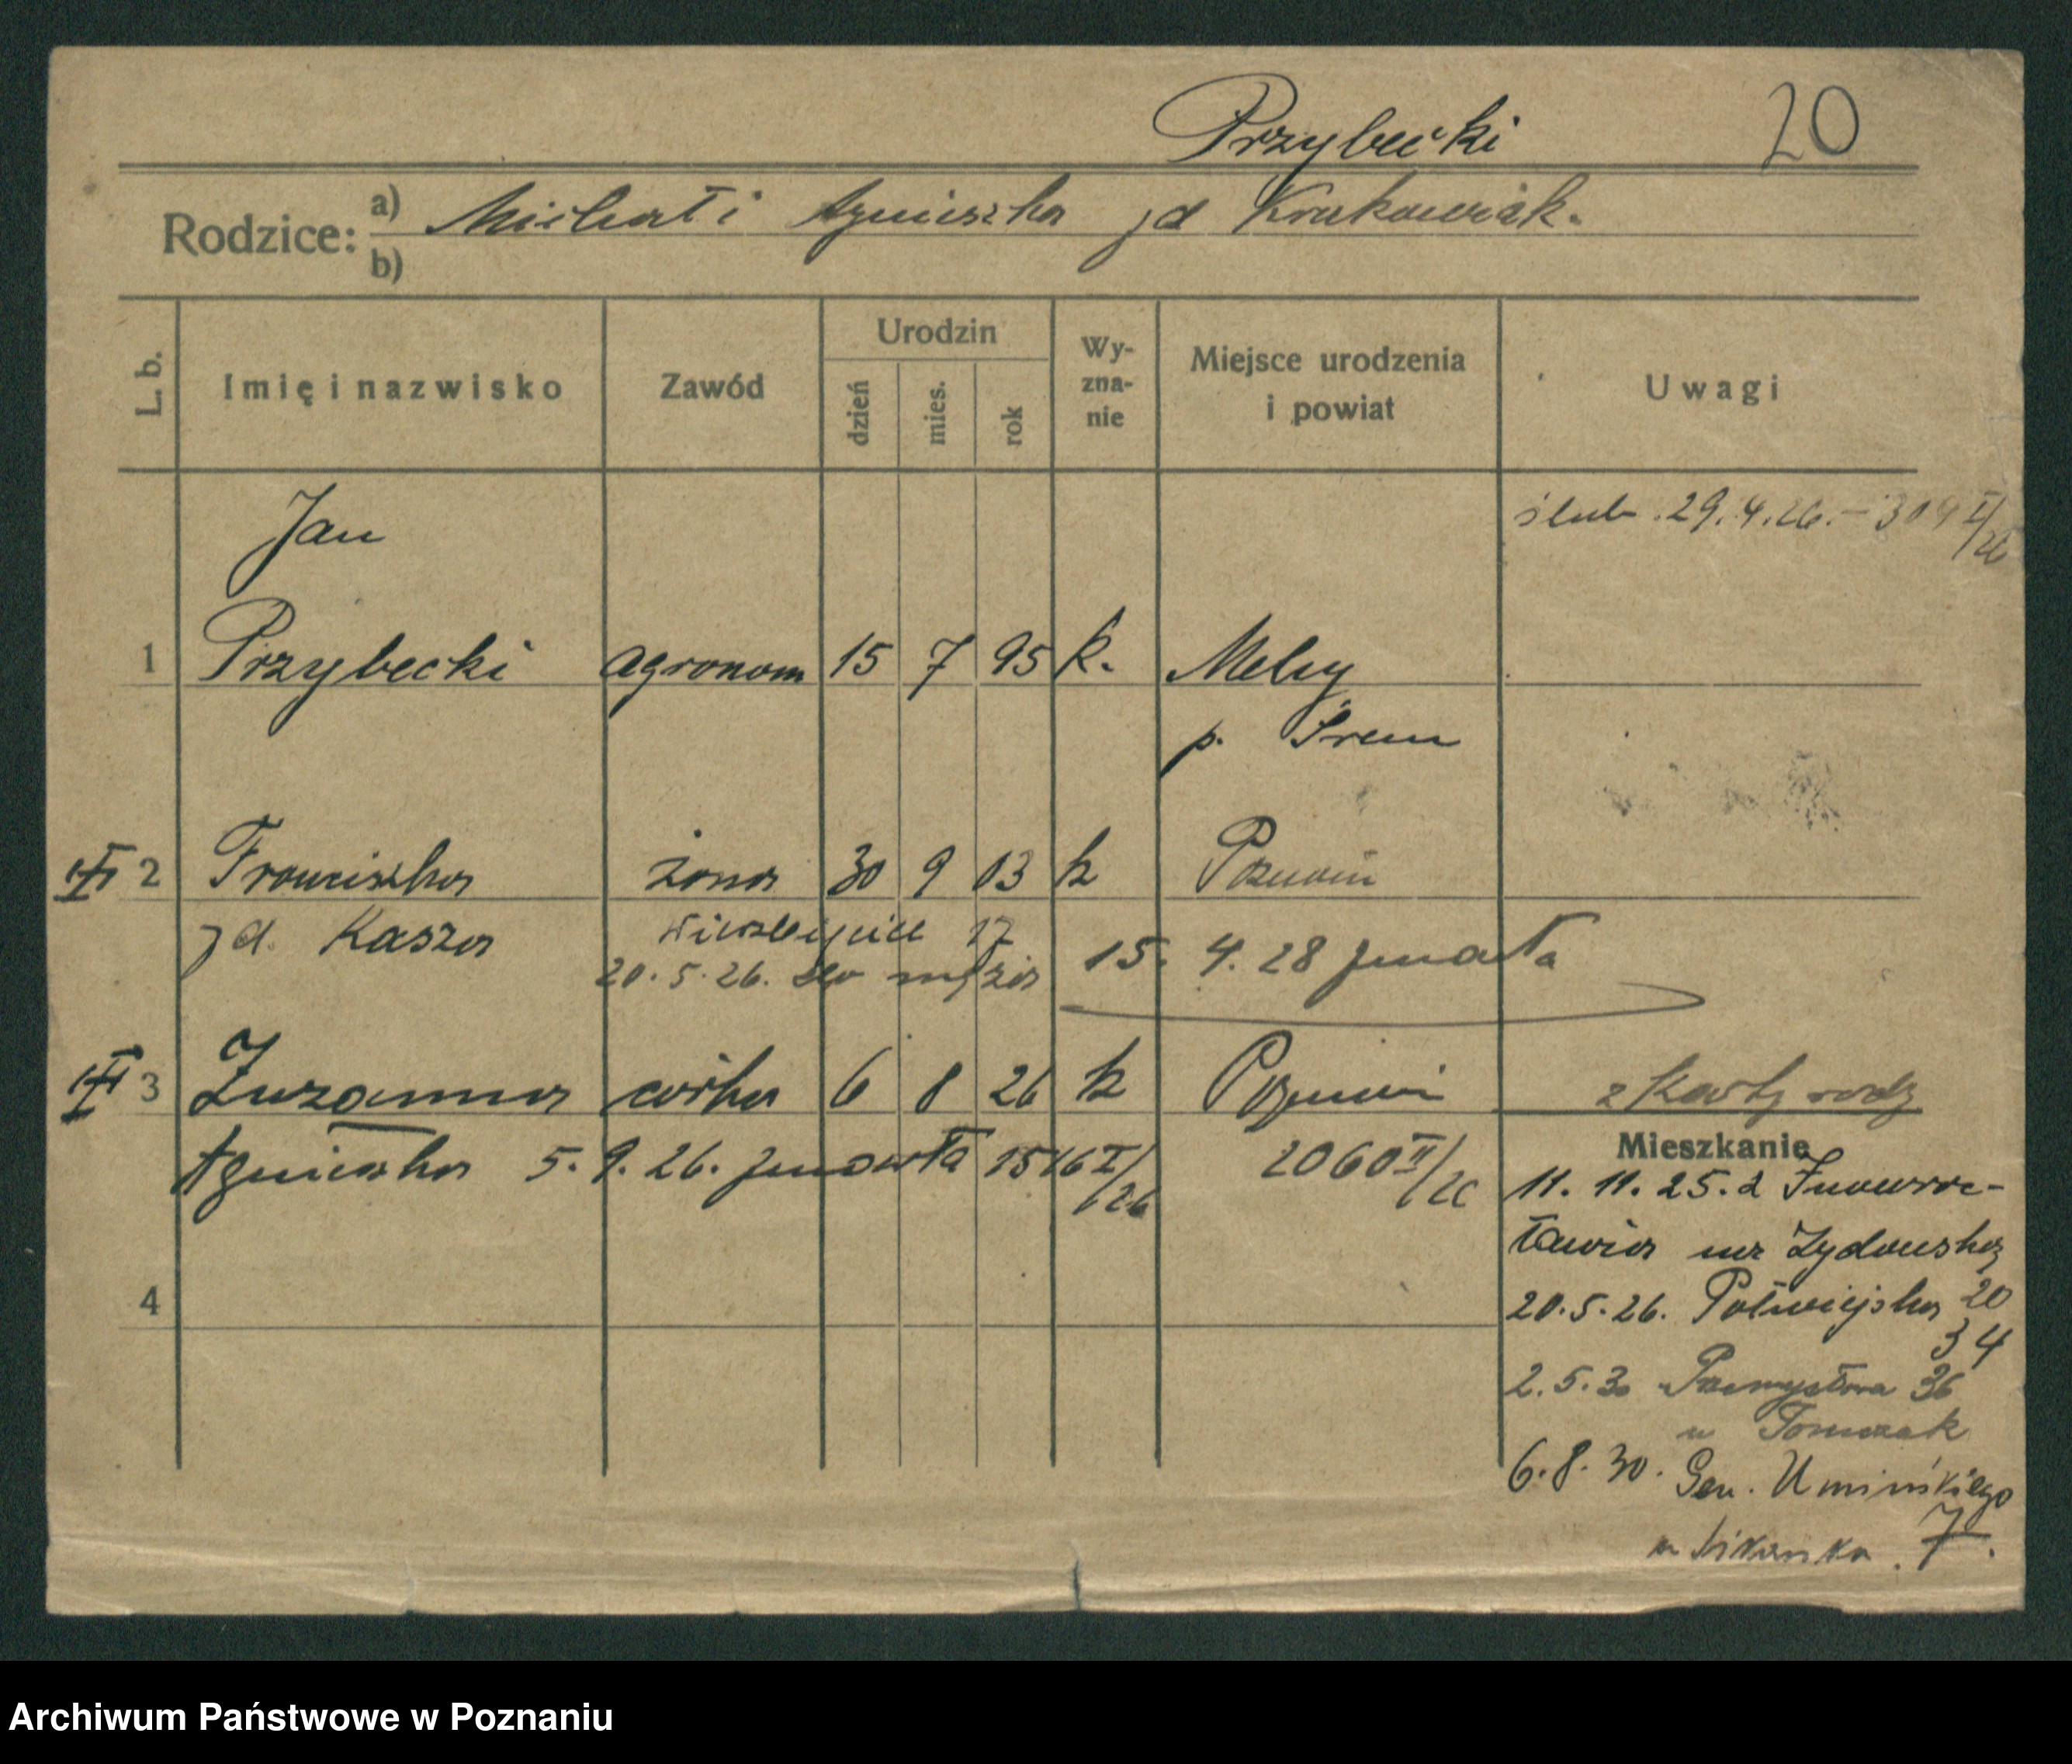 Przybecki 20
Rodzice: a) Michał i Agnieszka zd Krakowiak.
b)
L. b. Imię i nazwisko Zawód Urodzin dzień mies. rok Wy-zna-nie Miejsce urodzenia i powiat Uwagi
ślub 29.4.26. – 304 I/26
Jan
1 Przybecki agronom 15 7 95 k. Mełpy
p. Śrem
2 Franciszka żona 30 9 03 k Poznań
zd. Kasza Wierzbięcice 17
20.5.26. do męża 15. 4. 28 zmarła
3 Zuzanna córka 6 8 26 k Poznań z Karty rodz
Agnieszka 5. 9. 26. zmarła 1546 I/26 2060 II/26
Mieszkanie
11. 11. 25. z Inowroc-
ławia na Żydowską
20
20.5.26. Półwiejska
34
4
2.5.30 Przemysłowa 36
u Tomczak
6.8.30. Gen. Umińskiego
7.
Archiwum Państwowe w Poznaniu